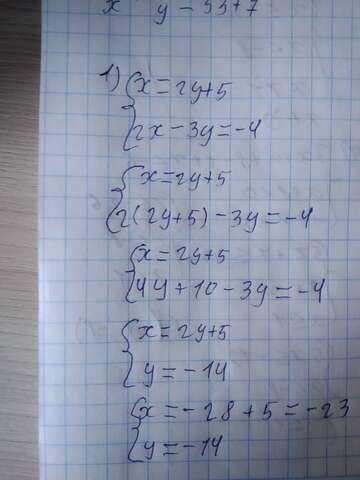 x y = 33+7
1) { x = 2y+5
2x - 3y = -4
{ x = 2y+5
2(2y+5) - 3y = -4
{ x = 2y+5
4y + 10 - 3y = -4
{ x = 2y+5
y = -14
{ x = -28 + 5 = -23
y = -14